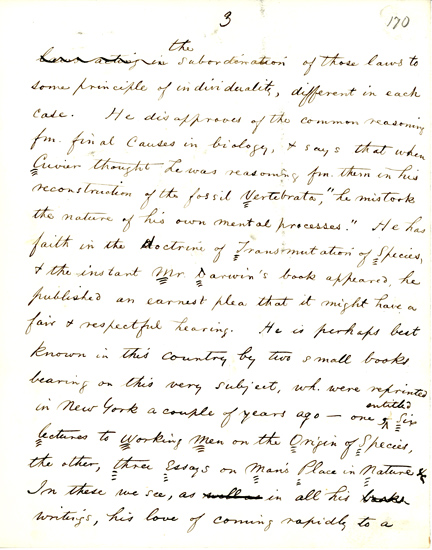 3
170
the
laws acting in subordination of those laws to
some principle of individuality, different in each
case. He disapproves of the common reasoning
fm. final Causes in biology, & says that when
Cuvier thought he was reasoning fm. them in his
reconstruction of the fossil Vertebrata, "he mistook
the nature of his own mental processes." He has
faith in the Doctrine of Transmutation of Species,
& the instant Mr. Darwin's book appeared, he
published an earnest plea that it might have a
fair & respectful hearing. He is perhaps best
known in this country by two small books
bearing on this very subject, wh. were reprinted
entitled
in New York a couple of years ago — one Six
lectures to Working Men on the Origin of Species,
the other, three Essays on Man's Place in Nature &c
In these we see, as well as in all his books
writings, his love of coming rapidly to a